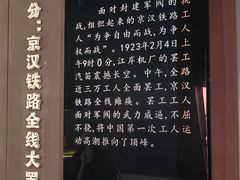 分：京汉铁路全线大罢
面对封建军阀的
战，组织起来的京汉铁路工
人"为争自由而战，为争人
权而战"。1923年2月4日上
午9时0分，江岸机厂的
汽笛震撼长空。中午，全
近三万工人全面罢工，京汉
铁路全线瘫痪。罢工工人
面对军阀的武力威逼，不屈
不挠，将中国第一次工人运
动高潮推向了顶峰。